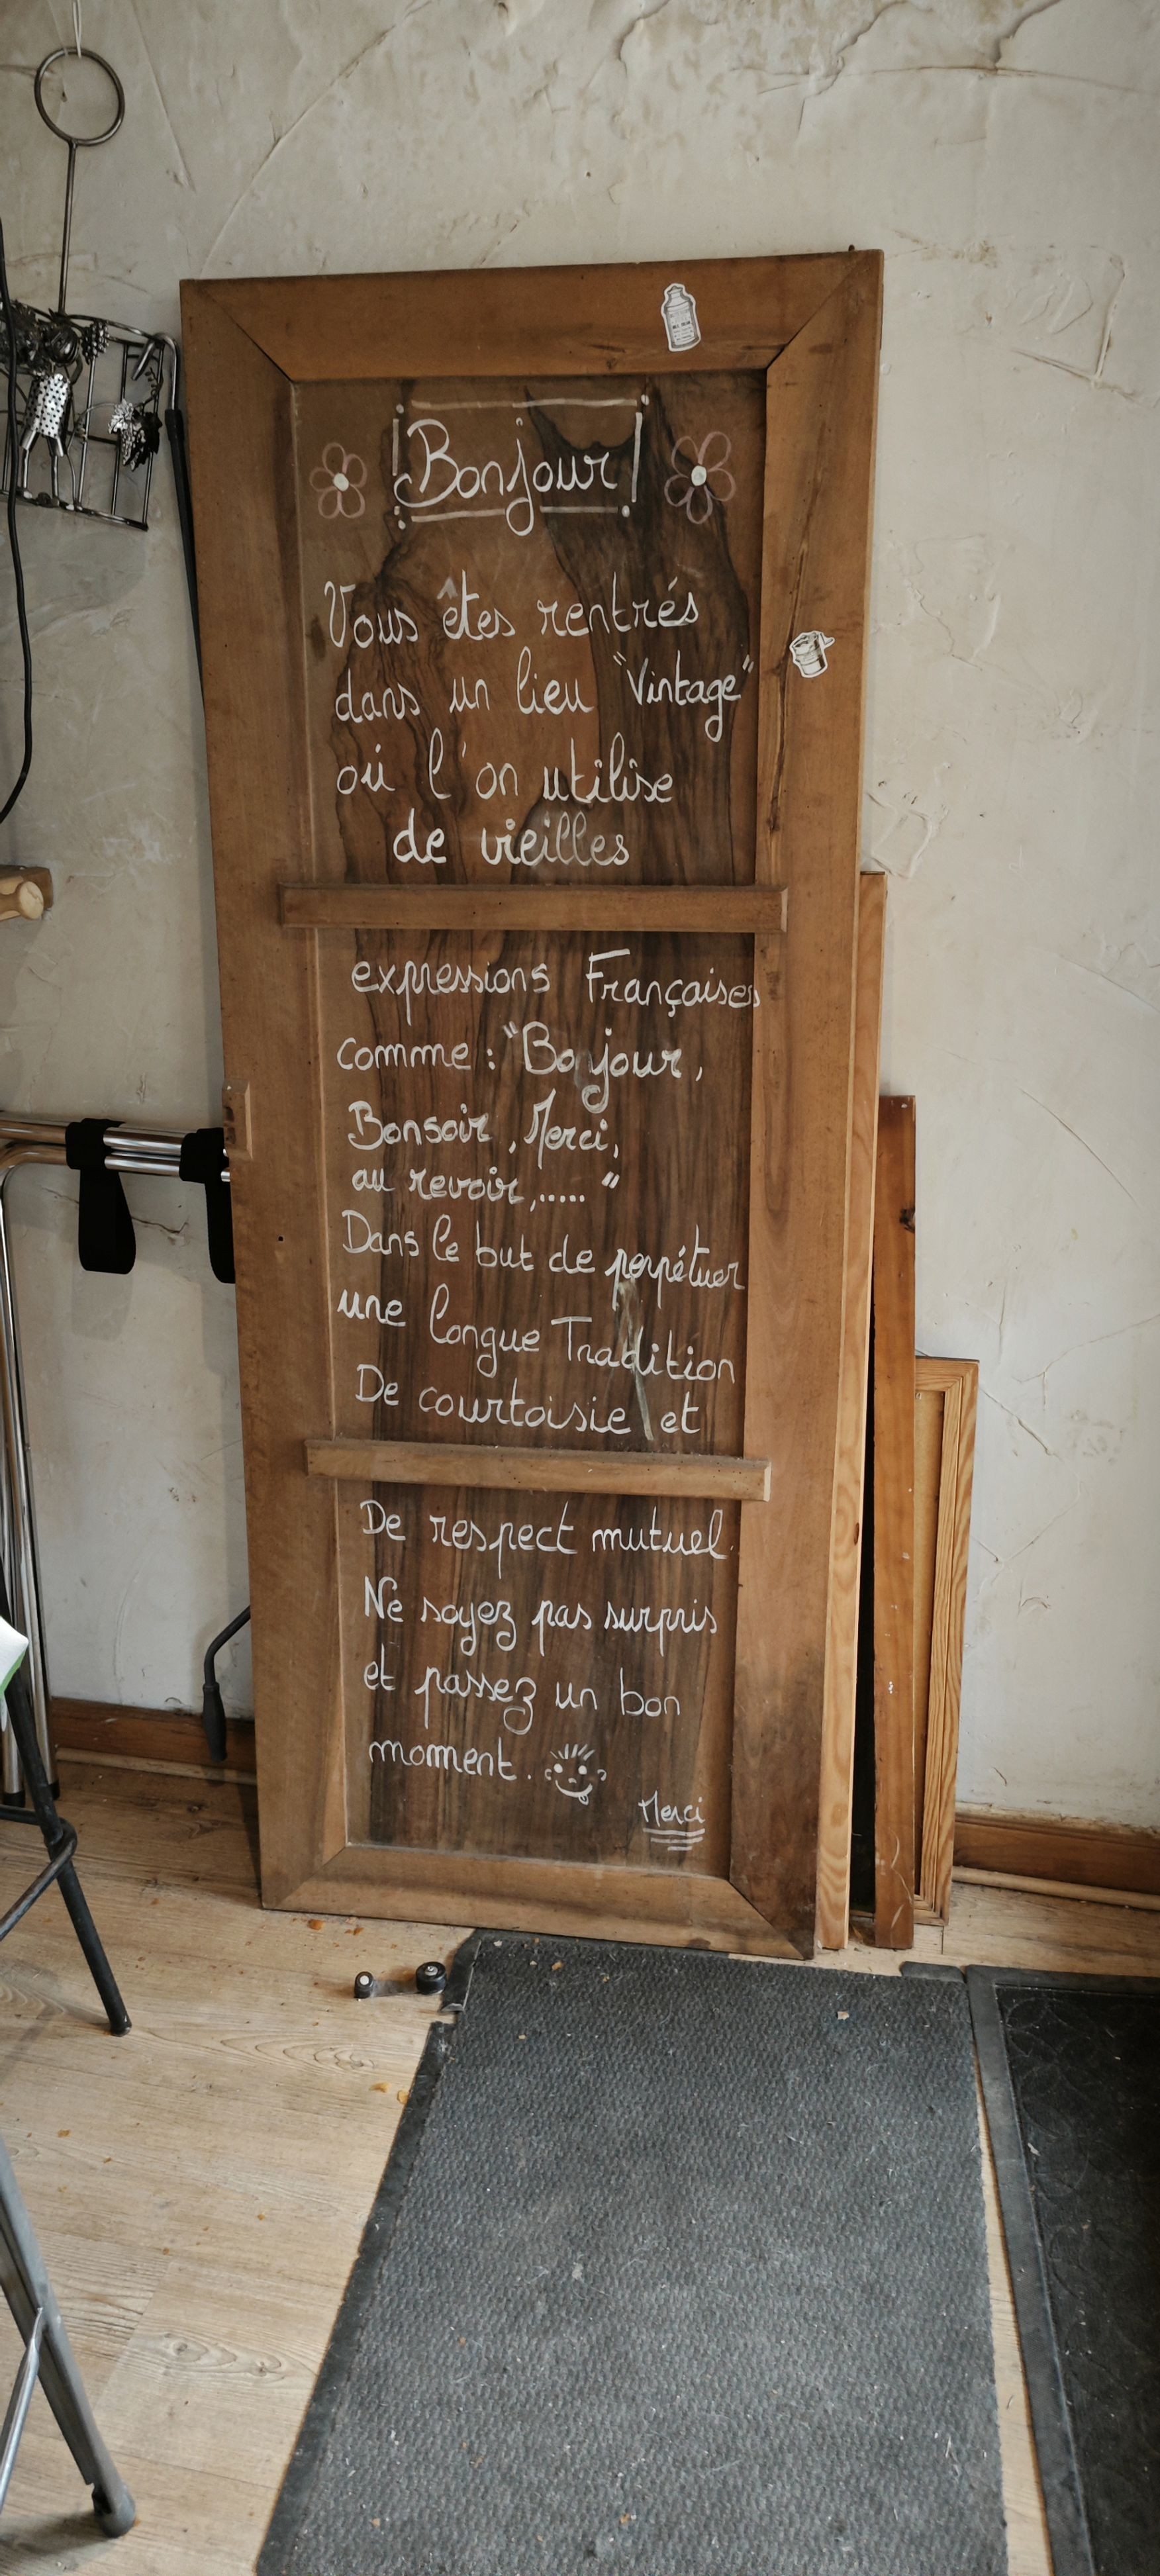 Bonjour!
Vous êtes rentrés
dans un lieu "Vintage"
où l'on utilise
de vieilles
expressions Françaises
comme : "Bonjour,
Bonsoir, Merci,
au revoir,....."
Dans le but de perpétuer
une longue Tradition
De courtoisie et
De respect mutuel.
Ne soyez pas surpris
et passez un bon
moment.
Merci